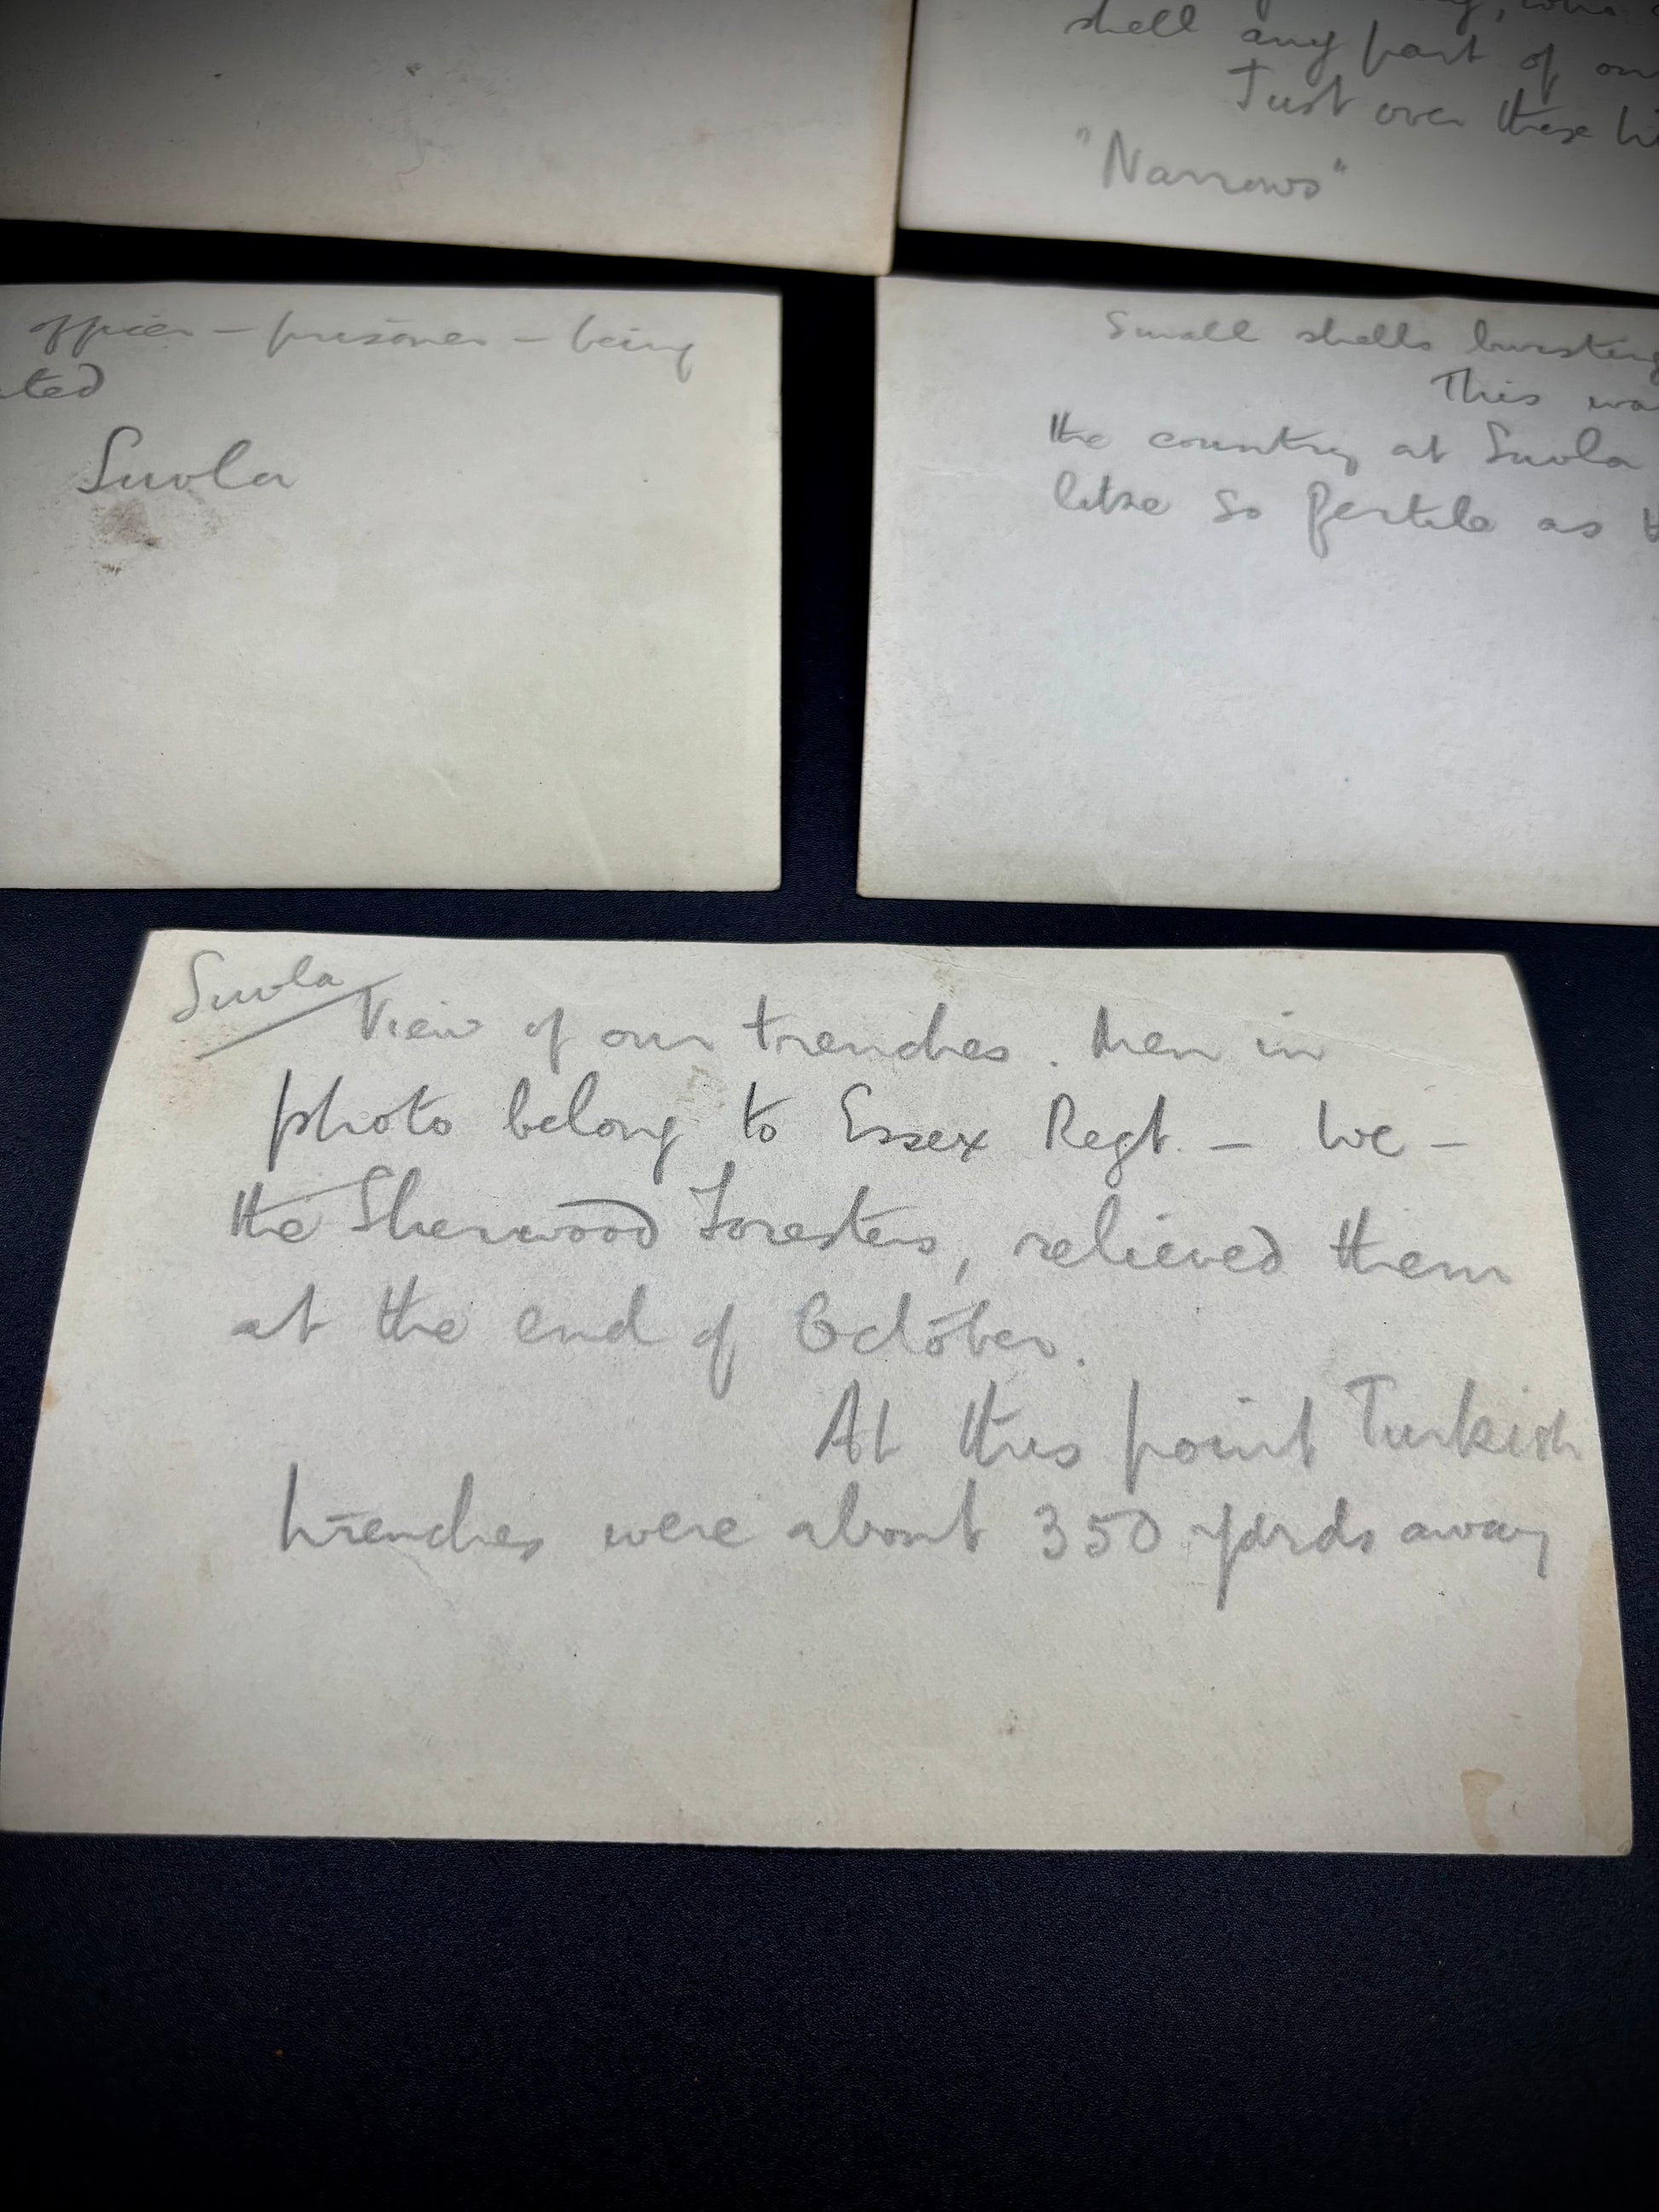 shell any part of
Just over these
"Narrows"
officer — prisoner — being
Suvla
Small shells bursting
This
the country at Suvla
like so fertile as
Suvla
View of our trenches. Men in
photo belong to Essex Regt. — We —
the Sherwood Foresters, relieved them
at the end of October.
At this point Turkish
trenches were about 350 yards away